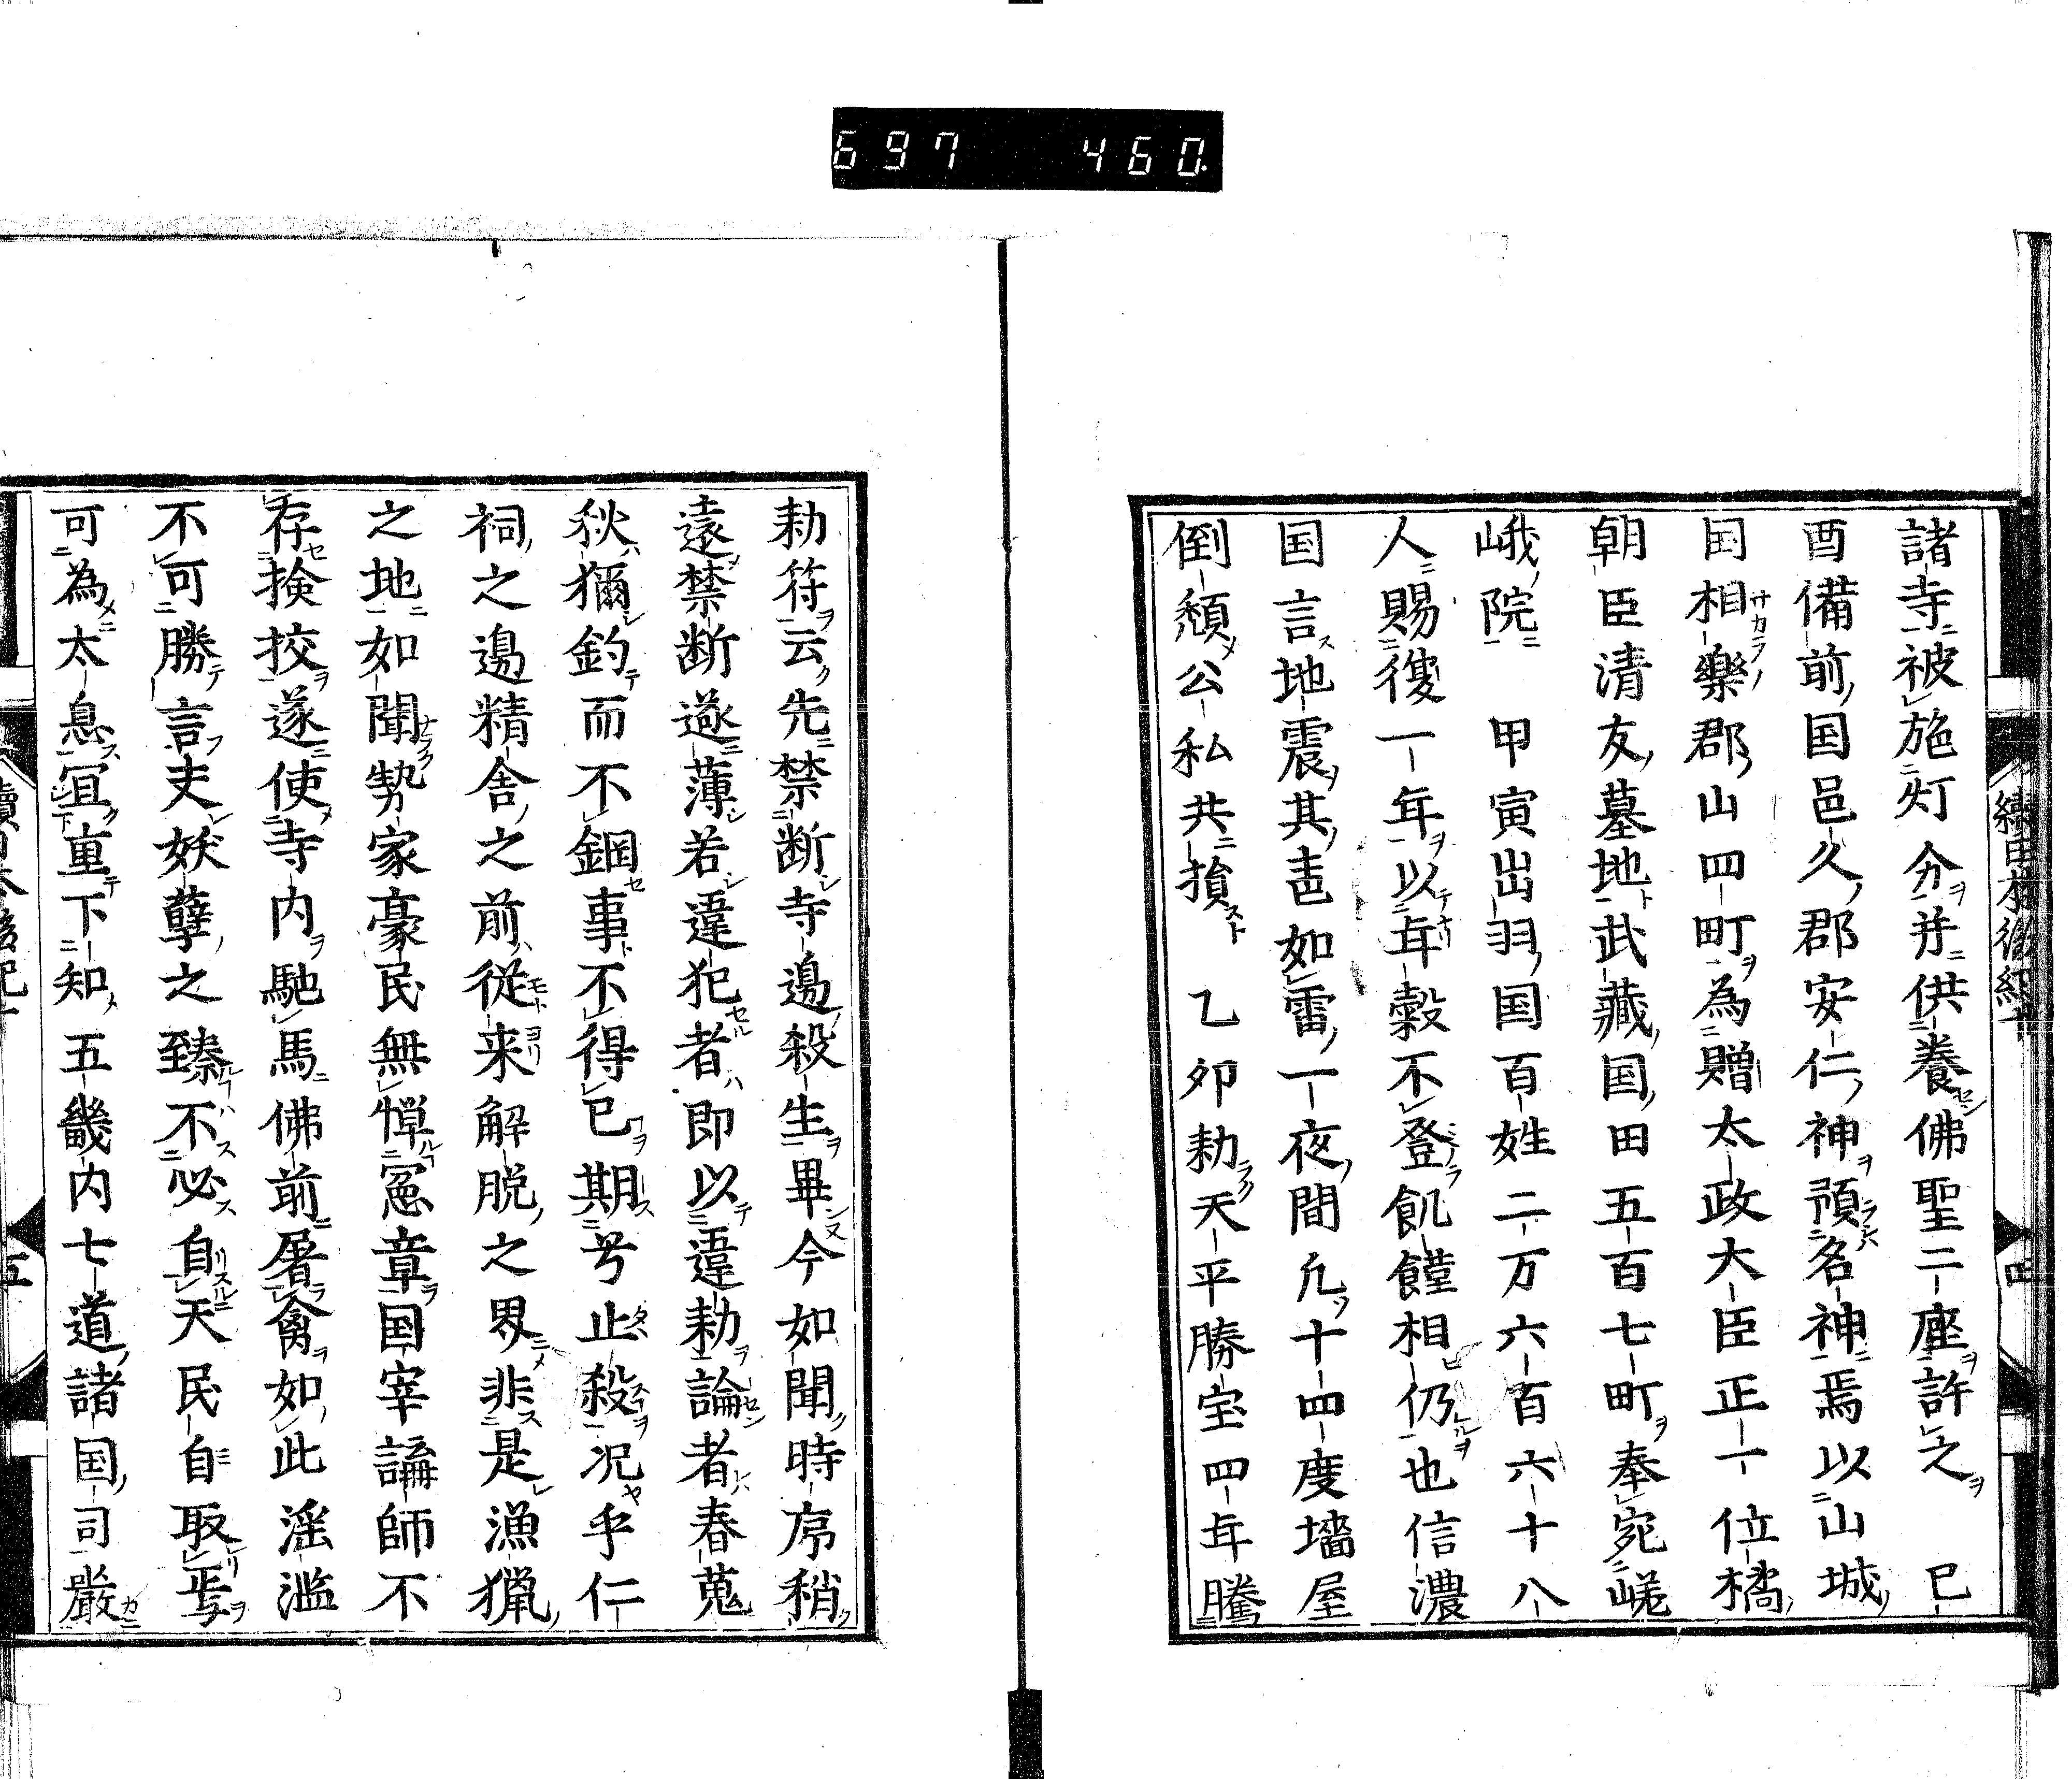 697 460.
續日本後紀十 四
諸寺被施灯分并供養佛聖二座許之 巳
酉備前国邑久郡安仁神預名神焉以山城
国相樂郡山四町為贈太政大臣正一位橘
朝臣清友墓地武藏国田五百七町奉宛嵯
峨院 甲寅出羽国百姓二万六百六十八
人賜復一年以年穀不登飢饉相仍也信濃
国言地震其声如雷一夜間凡十四度墻屋
倒頽公私共損 乙卯勅天平勝宝四年騰
勅符云先禁断寺邊殺生畢今如聞時序稍
遠禁断遂薄若違犯者即以違勅論者春蒐
秋獮釣而不鋼事不得已期兮止殺况乎仁
祠之邊精舎之前從来解脱之界非是漁猟
之地如聞勢家豪民無憚憲章国宰講師不
存捡挍遂使寺内馳馬佛前屠禽如此滛濫
不可勝言夫妖孽之臻不必自天民自取焉
可為太息冝重下知五畿内七道諸国司嚴